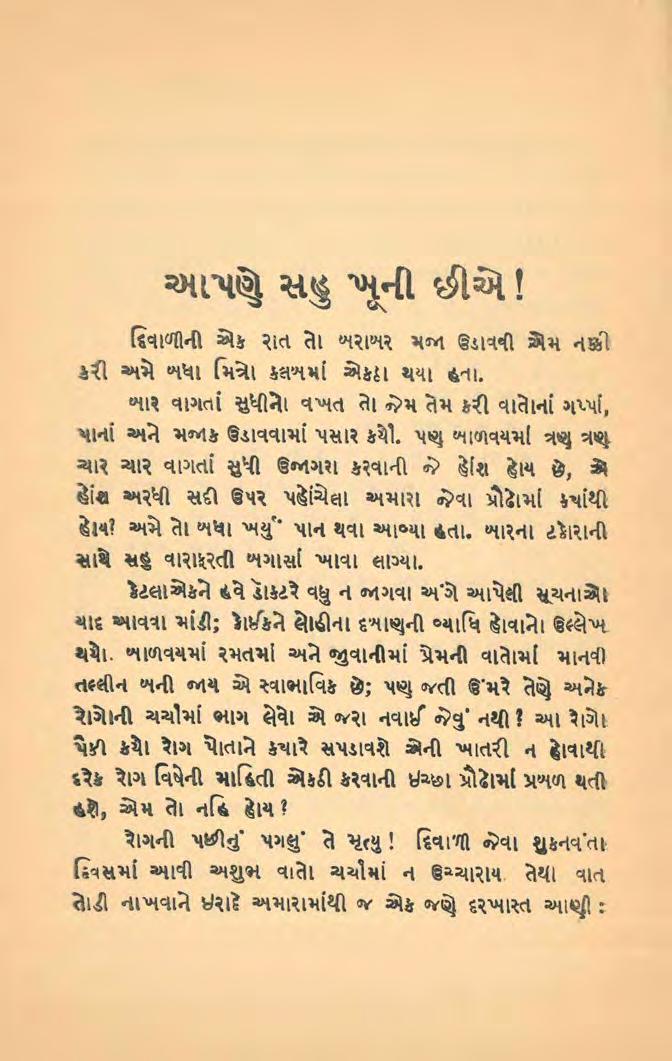 આપણે સહુ ખૂની છીએ !
દિવાળીની એક રાત તો બરાબર મજા ઉડાવવી એમ નક્કી
કરી અમે બધા મિત્રો કલબમાં એકઠા થયા હતા.
બાર વાગતાં સુધીનો વખત તો જેમ તેમ કરી વાતોનાં ગપ્પાં,
પાનાં અને મજાક ઉડાવવામાં પસાર કર્યો. પણ બાળવયમાં ત્રણ ત્રણ
ચાર ચાર વાગતાં સુધી ઉજાગરા કરવાની જે હોંશ હોય છે, એ
હોંશ અરધી સદી ઉપર પહોંચેલા અમારા જેવા પ્રૌઢોમાં ક્યાંથી
હોય? અમે તો બધા ખર્યું પાન થવા આવ્યા હતા. બારના ટકોરાની
સાથે સહુ વારાફરતી બગાસાં ખાવા લાગ્યા.
કેટલાએકને હવે ડૉક્ટરે વધુ ન જાગવા અંગે આપેલી સૂચનાઓ
યાદ આવવા માંડી; કોઈકને લોહીના દબાણની વ્યાધિ હોવાનો ઉલ્લેખ
થયો. બાળવયમાં રમતમાં અને જુવાનીમાં પ્રેમની વાતોમાં માનવી
તલ્લીન બની જાય એ સ્વાભાવિક છે; પણ જતી ઉંમરે તેણે અનેક
રોગોની ચર્ચામાં ભાગ લેવો એ જરા નવાઈ જેવું નથી ? આ રોગો
પૈકી કયો રોગ પોતાને ક્યારે સપડાવશે એની ખાતરી ન હોવાથી
દરેક રોગ વિષેની માહિતી એકઠી કરવાની ઈચ્છા પ્રૌઢોમાં પ્રબળ થતી
હશે, એમ તો નહિ હોય ?
રોગની પછીનું પગલું તે મૃત્યુ ! દિવાળી જેવા શુકનવંતા
દિવસમાં આવી અશુભ વાતો ચર્ચામાં ન ઉચ્ચારાય તેથી વાત
તોડી નાખવાને ઈરાદે અમારામાંથી જ એક જણે દરખાસ્ત આણી :